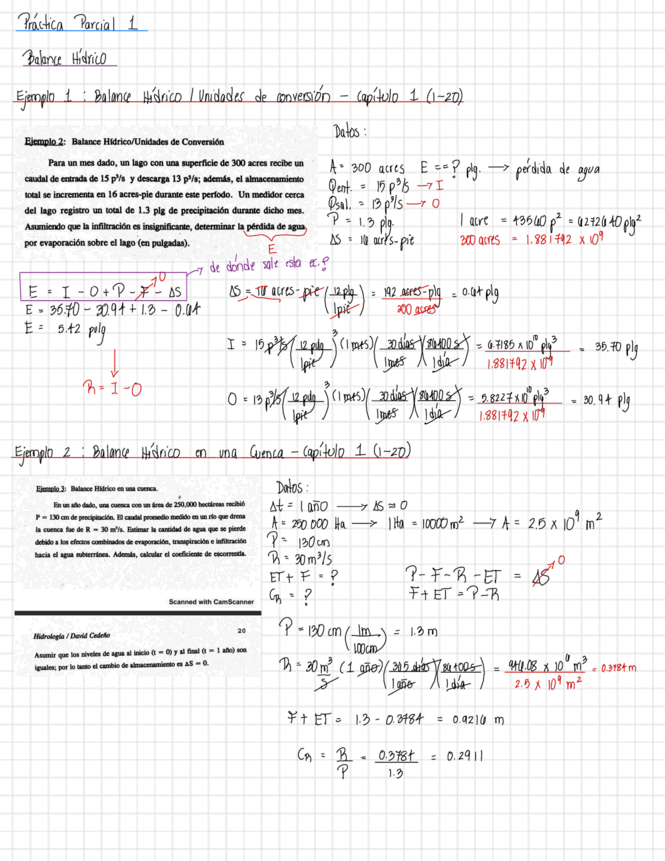 Práctica Parcial 1
Balance Hídrico
Ejemplo 1 : Balance Hídrico / Unidades de conversión – Capítulo 1 (1-20)
Ejemplo 2: Balance Hídrico/Unidades de Conversión
Para un mes dado, un lago con una superficie de 300 acres recibe un
caudal de entrada de 15 p³/s y descarga 13 p³/s; además, el almacenamiento
total se incrementa en 16 acres-pie durante este período. Un medidor cerca
del lago registro un total de 1.3 plg de precipitación durante dicho mes.
Asumiendo que la infiltración es insignificante, determinar la pérdida de agua
por evaporación sobre el lago (en pulgadas).
E
Datos :
A = 300 acres E == ? plg. → pérdida de agua
Qent. = 15 p³/s → I
Qsal. = 13 p³/s → O
P = 1.3 plg.
ΔS = 16 acres-pie
1 acre = 43560 p² = 6272640 plg²
300 acres = 1.881792 x 10⁹
de dónde sale esta ec.?
E = I - O + P - F - ΔS
0
E = 35.70 - 30.94 + 1.3 - 0.64
E = 5.42 pulg
R = I - O
ΔS = 16 acres-pie (12 plg / 1 pie) = 192 acres-plg / 300 acres = 0.64 plg
I = 15 p³/s (12 pulg / 1 pie)³ (1 mes) (30 días / 1 mes) (86400 s / 1 día) = 6.7185 x 10¹⁰ plg³ / 1.881792 x 10⁹ = 35.70 plg
O = 13 p³/s (12 pulg / 1 pie)³ (1 mes) (30 días / 1 mes) (86400 s / 1 día) = 5.8227 x 10¹⁰ plg³ / 1.881792 x 10⁹ = 30.94 plg
Ejemplo 2 : Balance Hídrico en una Cuenca – Capítulo 1 (1-20)
Ejemplo 3: Balance Hídrico en una cuenca.
En un año dado, una cuenca con un área de 250,000 hectáreas recibió
P = 130 cm de precipitación. El caudal promedio medido en un río que drena
la cuenca fue de R = 30 m³/s. Estimar la cantidad de agua que se pierde
debido a los efectos combinados de evaporación, transpiración e infiltración
hacia el agua subterránea. Además, calcular el coeficiente de escorrentía.
Scanned with CamScanner
Hidrología / David Cedeño 20
Asumir que los niveles de agua al inicio (t = 0) y al final (t = 1 año) son
iguales; por lo tanto el cambio de almacenamiento es ΔS = 0.
Datos :
Δt = 1 año → ΔS = 0
A = 250 000 Ha → 1 Ha = 10000 m² → A = 2.5 x 10⁹ m²
P = 130 cm
R = 30 m³/s
ET + F = ?
CR = ?
P - F - R - ET = ΔS
0
F + ET = P - R
P = 130 cm (1m / 100cm) = 1.3 m
R = 30 m³/s (1 año) (365 días / 1 año) (86400 s / 1 día) = 946.08 x 10⁶ m³ / 2.5 x 10⁹ m² = 0.3784 m
F + ET = 1.3 - 0.3784 = 0.9216 m
CR = R / P = 0.3784 / 1.3 = 0.2911